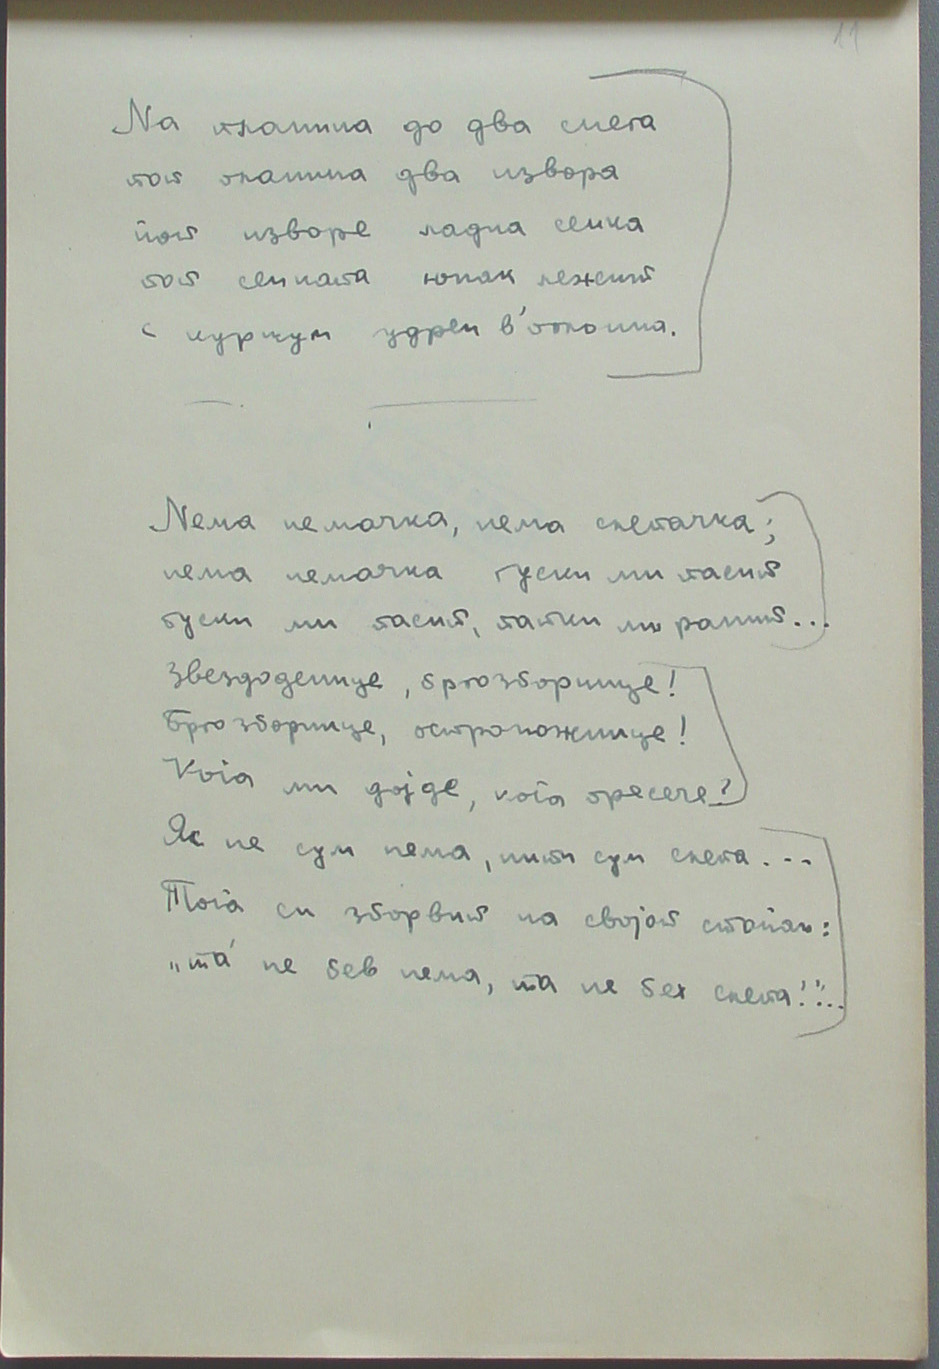 11
На планина до два снега
под планина два извора
под изворе ладна сенка
под сенката јунак лежит
с куршум удрен в' планина.
Нема немачка, нема слетачка;
нема немачка гуски ми пасит
гуски ми пасит, патки ми ранит...
Звездоденице, бргозборнице!
Бргозборнице, остроножнице!
Кога ми дојде, кога пресече?
Як не сум нема, нити сум слепа...
Тога си зборвит на својот стопан:
„та не бев нема, та не бех слепа!"...